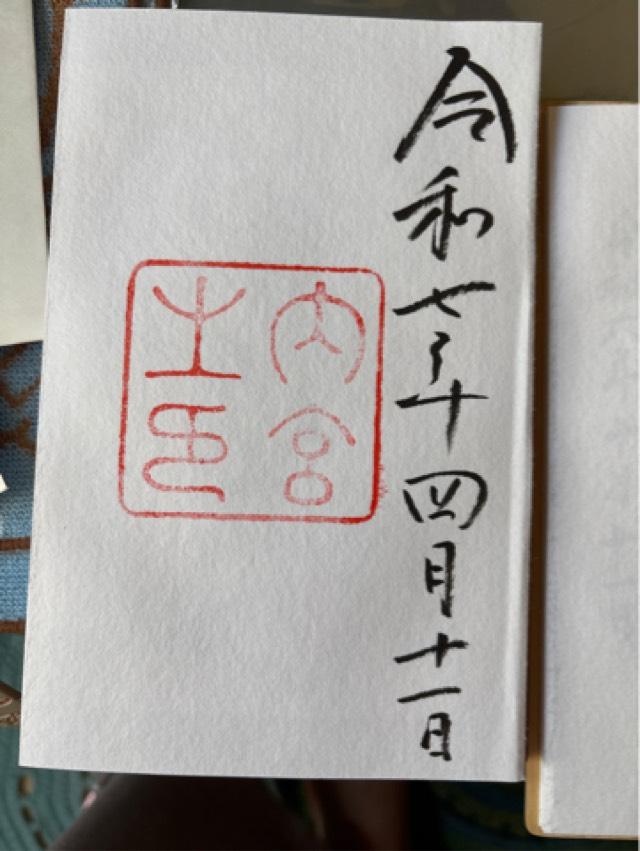 令和七年四月十一日
内宮
之印